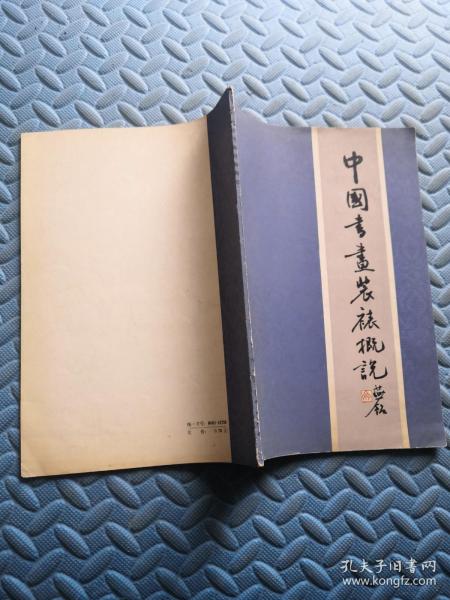 中國書畫裝裱概説
统一书号：
定价：
孔夫子旧书网
www.kongfz.com